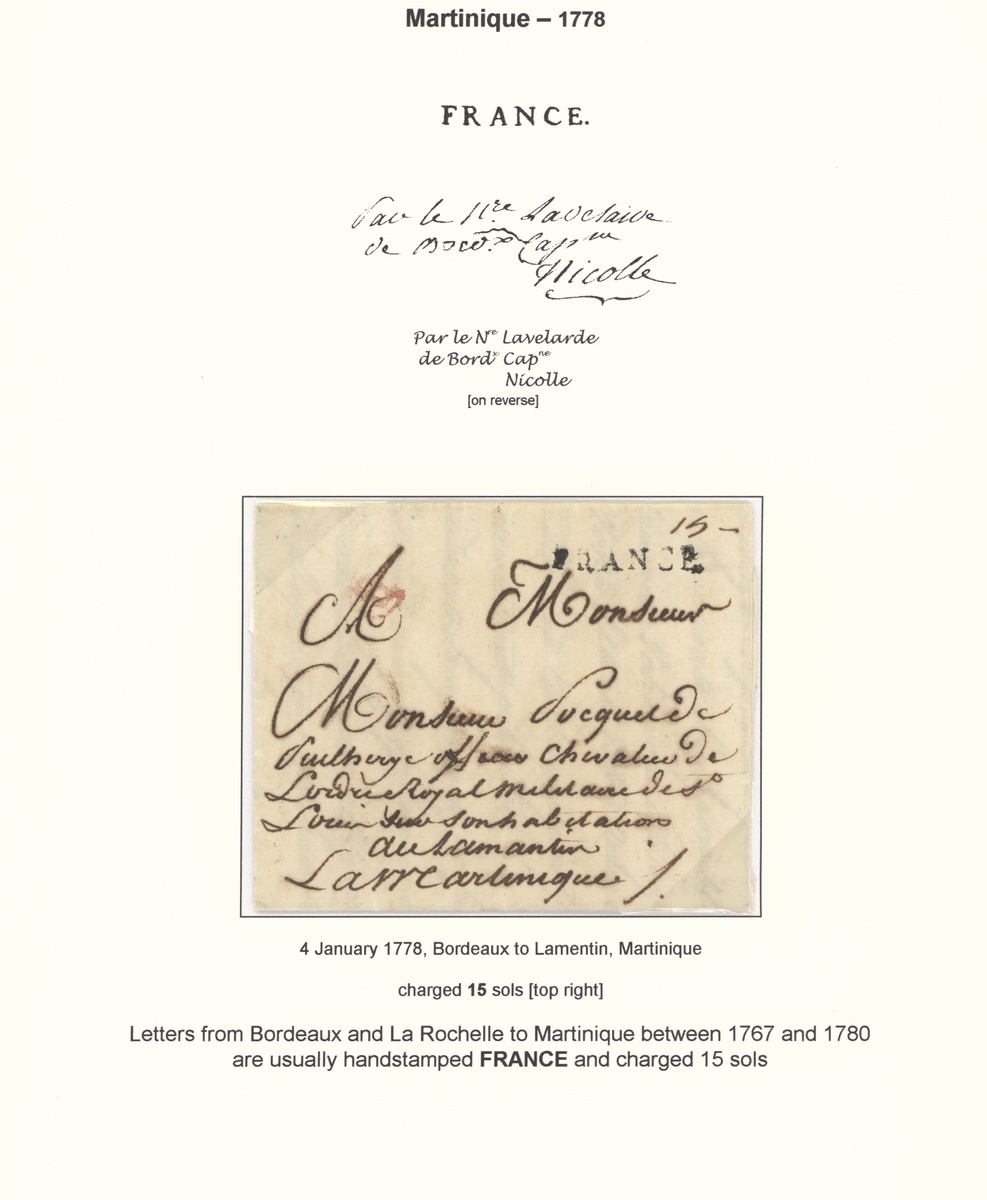 Martinique – 1778
FRANCE.
Par le Nre Lavelaire
de Bordx Capne
Nicolle
Par le Nre Lavelarde
de Bordx Capne
Nicolle
[on reverse]
15 –
FRANCE
A Monsieur
Monsieur Pocquet De
officier Chevalier De
Lordre Royal Militaire de St
Louis Sur Son habitation
au Lamantin
La Martinique /.
4 January 1778, Bordeaux to Lamentin, Martinique
charged 15 sols [top right]
Letters from Bordeaux and La Rochelle to Martinique between 1767 and 1780
are usually handstamped FRANCE and charged 15 sols